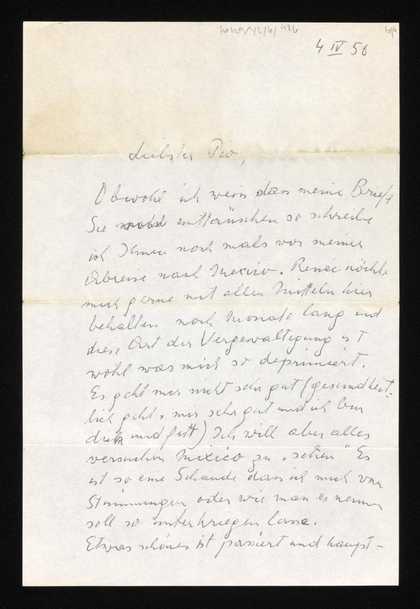 4 IV 56
Liebster Pio,
Obwohl ich weis dass meine Briefe
Sie enttäuschen so schreibe
ich Ihnen noch mals vor meiner
Abreise nach Mexico. Renée möchte
mich gerne mit allen Mitteln hier
behalten noch Monate lang und
diese Art der Vergewaltigung ist
wohl was mich so deprimiert.
Es geht mir nicht sehr gut (gesundheit-
lich geht's mir sehr gut und ich bin
dick und fett) Ich will aber alles
versuchen Mexico zu „sehen" Es
ist so eine Schande dass ich mich von
Stimmungen oder wie man es nennen
soll so unterkriegen lasse.
Etwas schönes ist passiert und haupt-